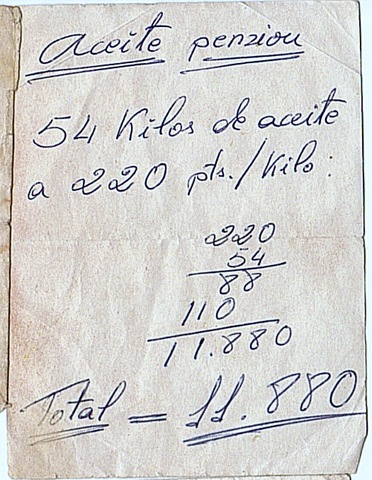 Aceite pension
54 Kilos de aceite
a 220 pts./Kilo:
220
54
88
110
11.880
Total = 11.880